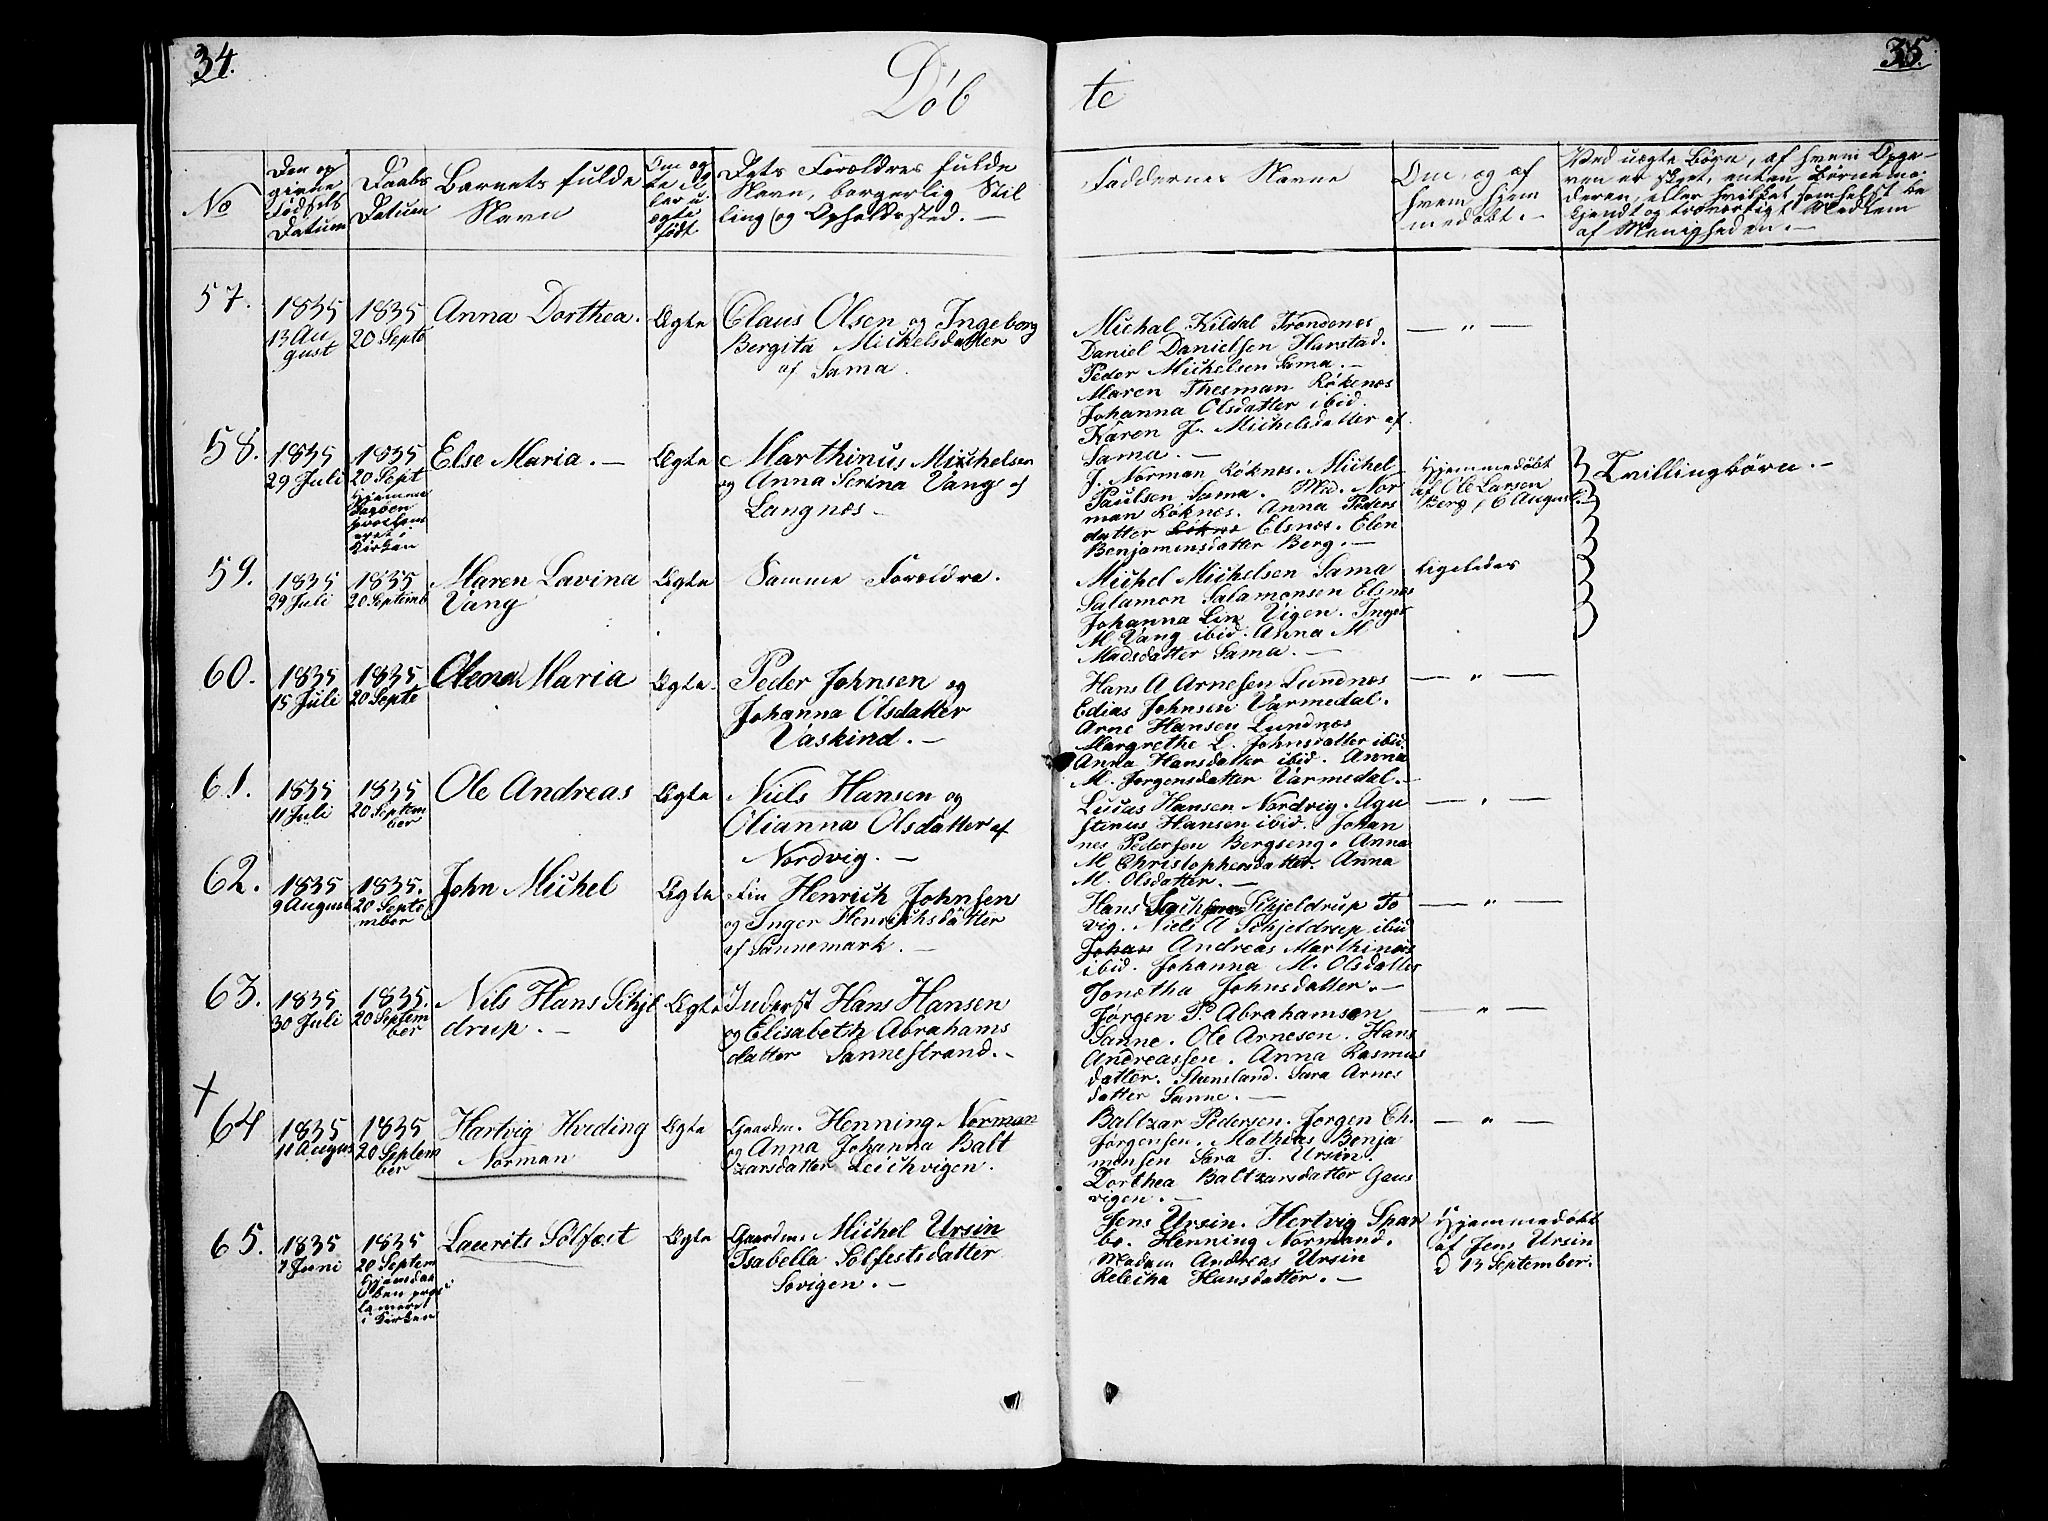 34.
35.
Døb
te
No
Den op
givne
Fødsels
Datum
Daabs
Datum
Barnets fulde
Navn
Om æg
te el
ler u
ægte
født
Dets Forældres fulde
Navn, borgerlig Stil
ling og Opholdssted. —
Faddernes Navne
Om, og af
hvem hjem
medøbt. —
Ved uægte Børn, af hvem Opga-
ven er skeet, enten Børnemo-
deren, eller hvilket somhelst be
kjendt og troværdigt Medlem
af Menigheden. —
57.
1835
13 Au
gust
1835
20 Septb
Anna Dorthea.
Ægte
Claus Olsen og Ingeborg
Bergita Mickelsdatter
af Sama.
Michal Kildal Trondenes
Daniel Danielsen Harstad.
Peder Michelsen Sama. —
Maren Thesman Røkenes
Johanna Olsdatter ibid.
Karen J. Michelsdatter af
Sama. —
— " —
58.
1835
29 Juli
1835
20 Sept
Hjemme
Daaben
procla­m
eret i
Kirken
Else Maria. —
Ægte
Marthinus Michelsen
og Anna Serina Vang af
Langnæs —
J. Norman Røknes. Michel
Paulsen Sama. Md. Nor
man Røknes. Anna Peders
datter Elsnes. Elen
Benjaminsdatter Berg. —
Hjemmedøbt
af Ole Larsen
Berg, 6 August. —
Tvillingbørn. —
59.
1835
29 Juli
1835
20 Septemb
Maren Lavina
Vang
Ægte
Samme Forældre.
Michel Michelsen Sama
Salamon Salamonsen Elsnes
Johanna Lin Vigen. Inger
M Vang ibid. Anna M
Madsdatter Sama. —
Ligeledes
60.
1835
15 Juli
1835
20 Septe
Olena Maria
Ægte.
Peder Johnsen og
Johanna Olsdatter
Vaskind. —
Hans A Arnesen Lundnes
Edias Johnsen Varmedal.
Arne Hansen Lundnæs
Margrethe L. Johnsdatter ibid.
Anna Hansdatter ibid. Anna
M. Jørgensdatter Varmedal. —
— " —
61.
1835
11 Juli
1835
20 Septem
ber
Ole Andreas
Ægte
Niels Hansen og
Olianna Olsdatter af
Nordvig. —
Lucas Hansen Nordvig. Agu
stinus Hansen ibid. Johan
nes Pedersen Bergseng. Anna
M Christophersdatter. Anna
M. Olsdatter. —
— " —
62.
1835
9 August
1835.
20 Septe
mber
John Michel
Ægte
Fin Henrich Johnsen
og Inger Henrichsdatter
af Sannemark. —
Hans Schjeldrup To
vig. Niels A Schjeldrup ibid
Johan Andreas Marthinsen
ibid. Johanna M. Olsdatter
Jonetha Johnsdatter. —
— " —
63.
1835
30 Juli
1835.
20 Septem
ber
Nils Hans Schjel
drup. —
Ægte
Inderst Hans Hansen
og Elisabeth Abrahams
datter Sannestrand. —
Jørgen P. Abrahamsen
Sanne. Ole Arnesen. Hans
Andreassen. Anna Rasmus
datter. Stansland. Sara Arnes
datter Sanne. —
— " —
+
64
1835
11 Augus
1835
20 Septem
ber
Hartvig Hviding
Norman
Ægte
Gaardm. Henning Norman
og Anna Johanna Balt
zarsdatter Leichvigen.
Baltzar Pedersen. Jørgen Ch.
Jørgensen. Mathias Benja
minsen Sara T. Ursin.
Dorthea Baltzarsdatter Gaus
vigen. —
— " —
65.
1835
7 Juni
1835
20 Septem
Hjemdaa
ben proc
lameret
i Kirken
Laurits Sølfæst
Ægte
Gaardm. Michel Ursin
Isabella Sølfestsdatter
Sovigen. —
Jens Ursin. Hertvig Spar
bo. Henning Normand.
Madam Andreas Ursin
Relecha Hansdatter. —
Hjemmedøbt
af Jens Ursin
d 13 September.